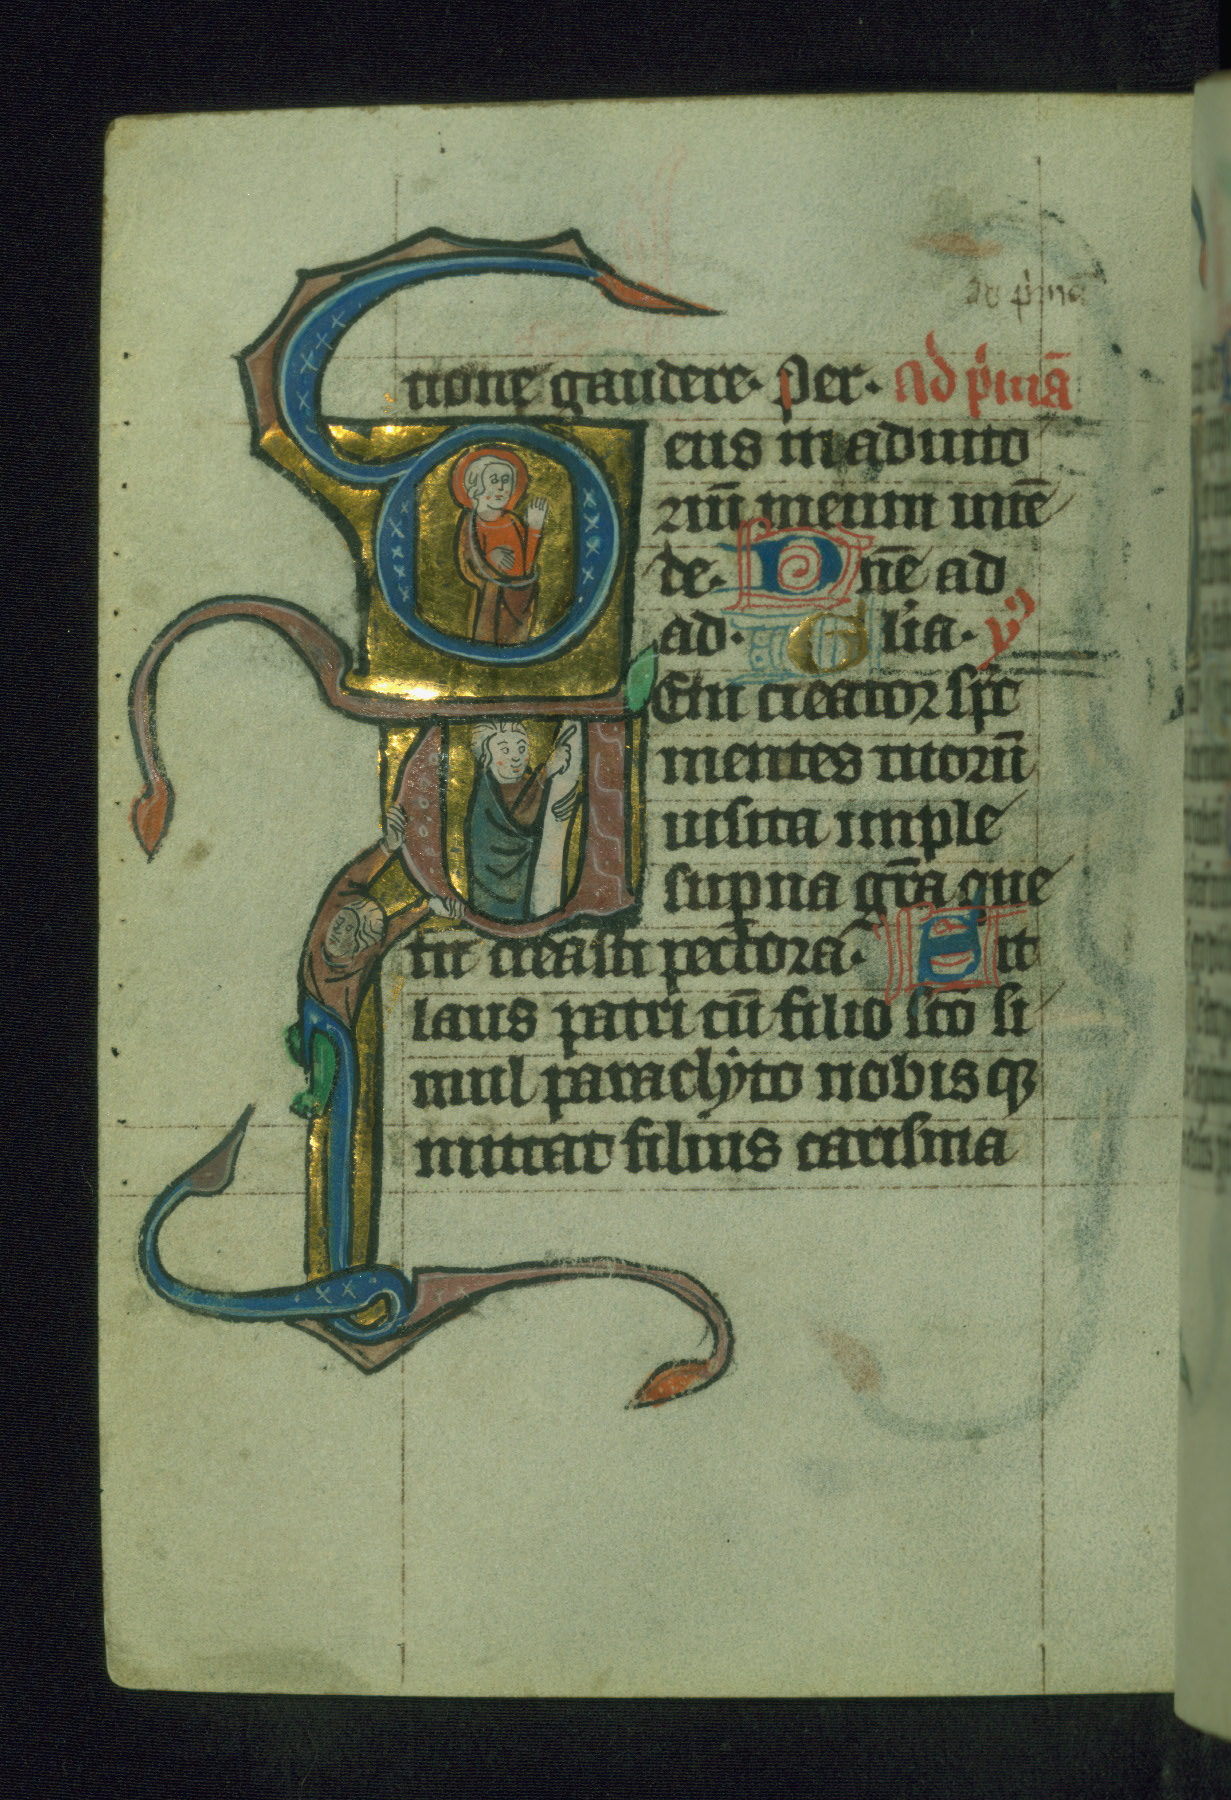 ad p'ma
tione gaudere. per. ad p'mā
Deus in adiuto
riū meum intē
de. Dn̄e ad
ad. Gl'ia. ym
Veni creator sp̄c
mentes tuorū
uisita imple
sup̱na gr̄a que
tu creasti pectora. Sit
laus patri cū filio sc̄o si
mul paraclyto nobis q3
mittat filius carisma